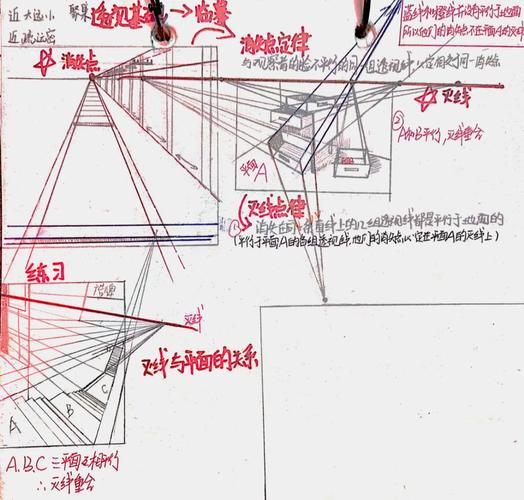 近大远小
近疏远密
聚集
透视基础→临摹
蓝线和橙线并没有平行于地面
所以他们的消失点不在平面A的灭线
消失点
消失点定律
与观察者的脸不平行的同一组透视线,必定相交于同一消失点
灭线
平面A
② A和B平行,灭线重合
灭线定律
① 消失在同一条直线上的几组透视线都是平行于地面的
(平行于平面A的各组透视线,他们的消失点必定在平面A的灭线上)
练习
灭线
灭线与平面的关系
A
B
C
A.B.C 三平面互相平行
∴灭线重合